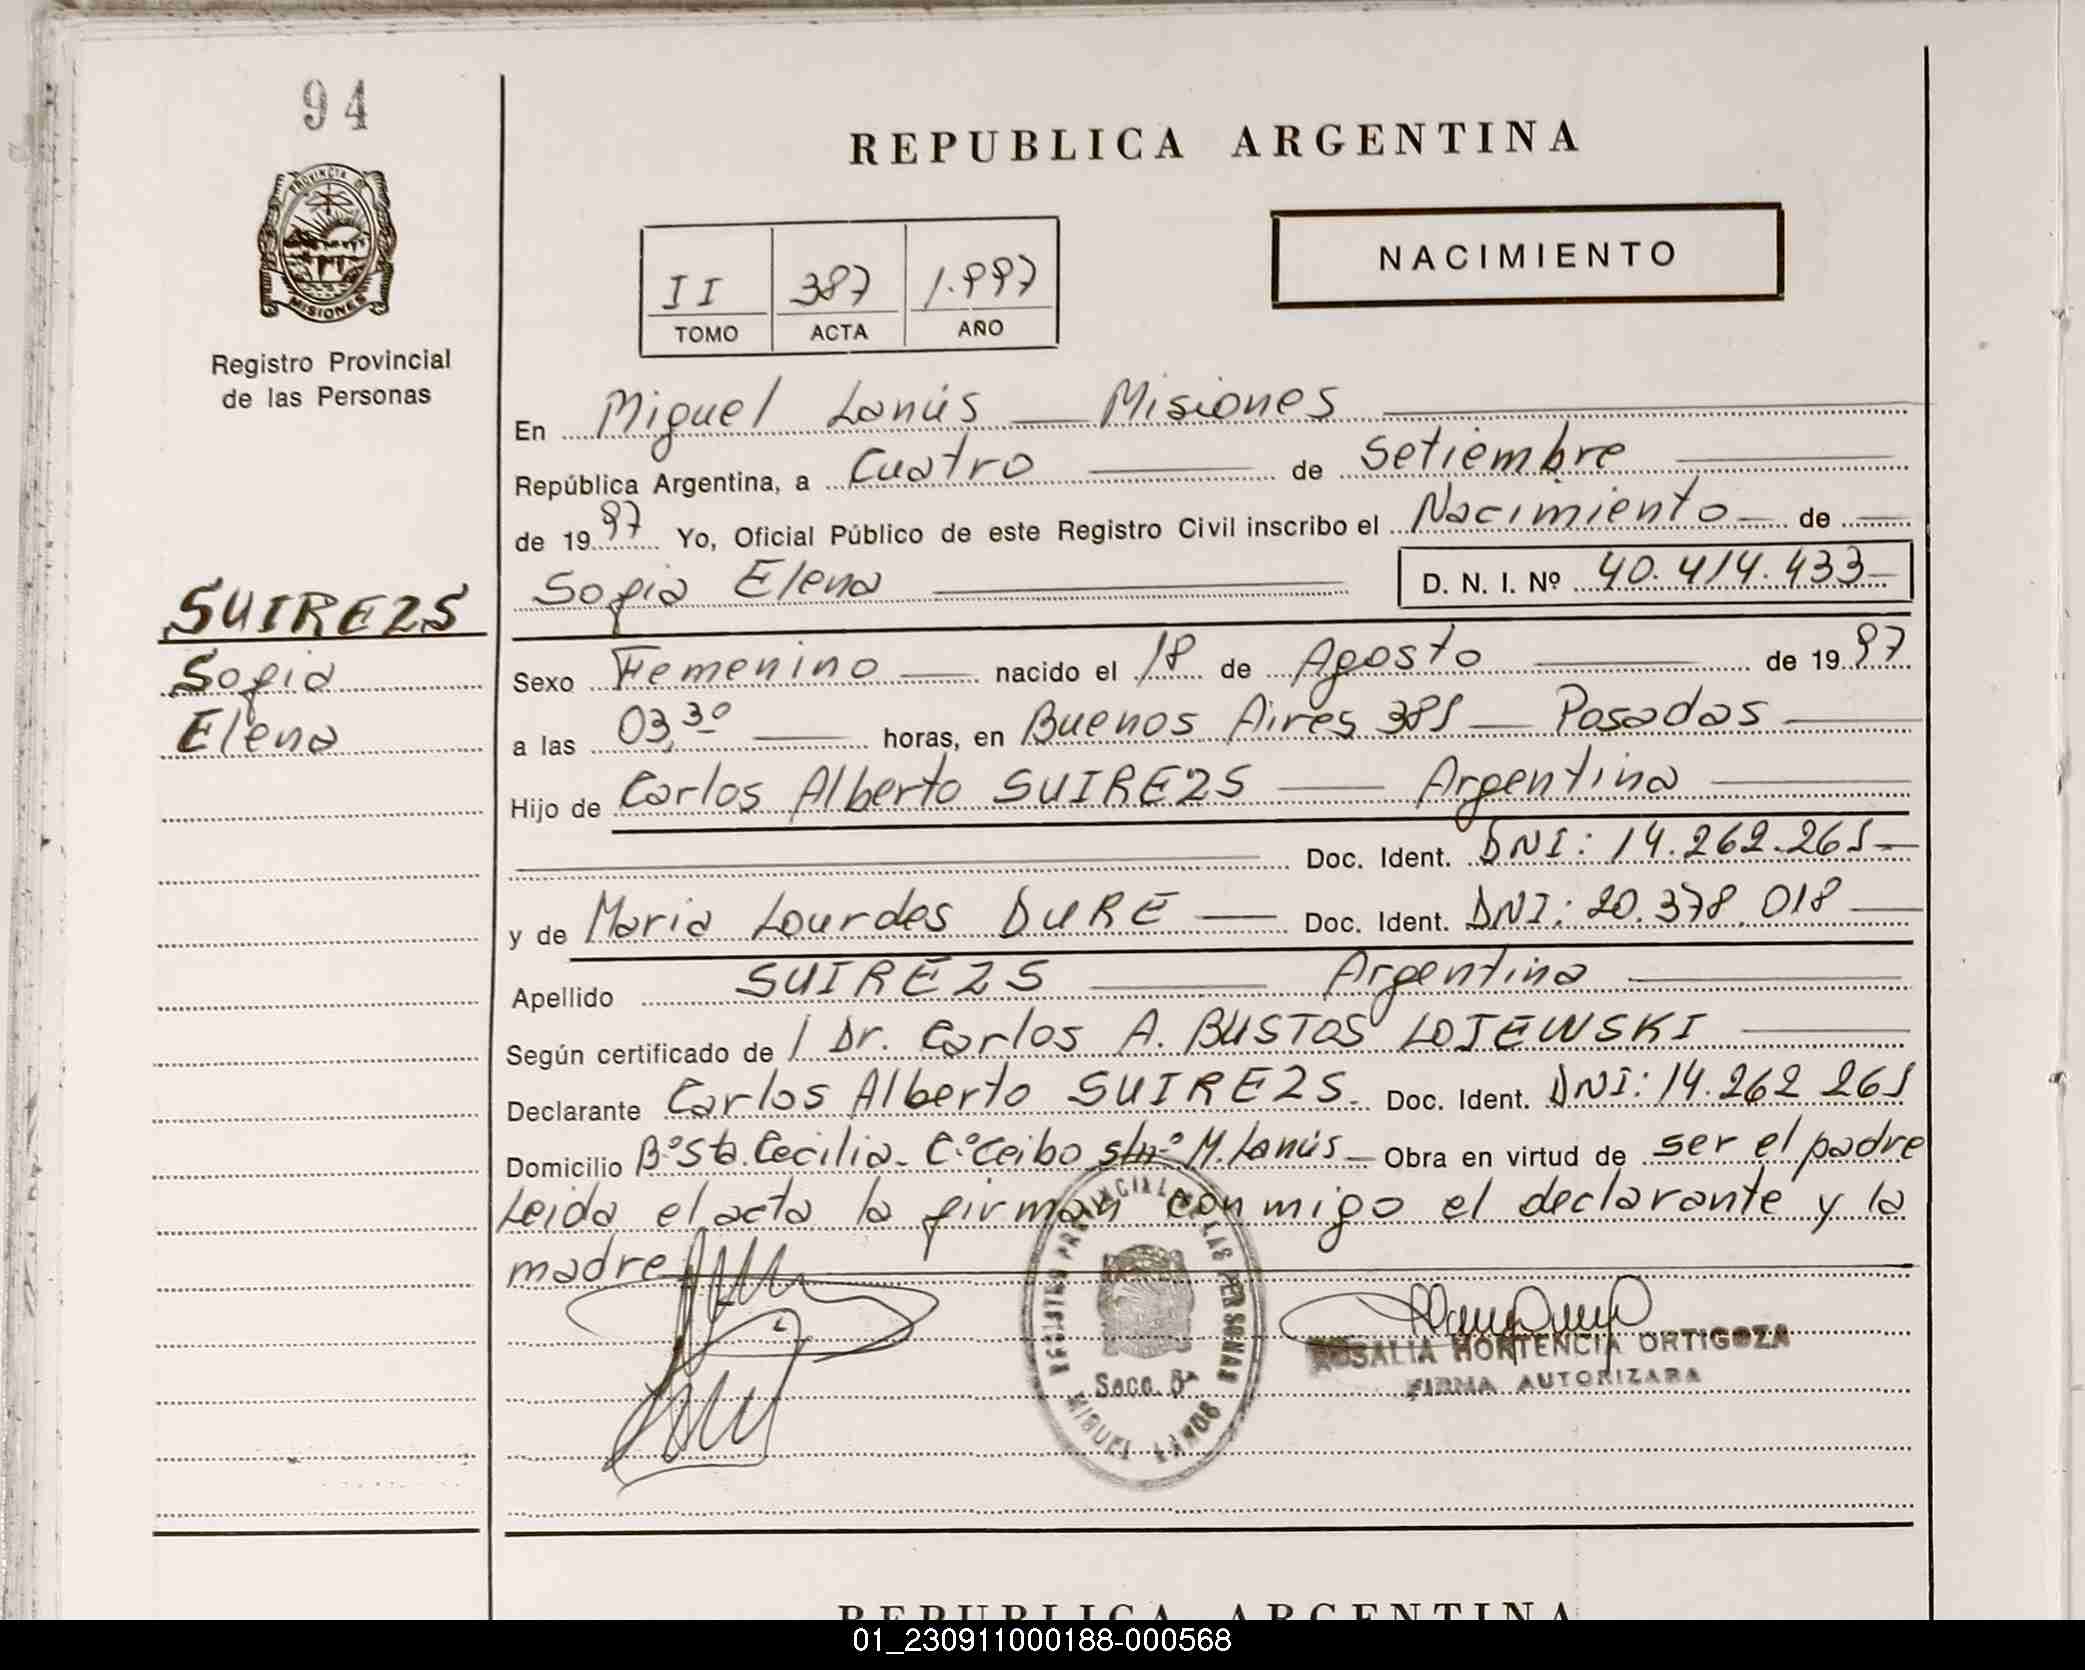 94
REPUBLICA ARGENTINA
PROVINCIA DE
MISIONES
Registro Provincial
de las Personas
NACIMIENTO
II 387 1.997
TOMO ACTA AÑO
En Miguel Lanús Misiones
República Argentina, a Cuatro de Setiembre
de 1997 Yo, Oficial Público de este Registro Civil inscribo el Nacimiento de
Sofia Elena D. N. I. Nº 40.414.433
SUIREZS
Sofia
Elena
Sexo Femenino nacido el 18 de Agosto de 1997
a las 03,30 horas, en Buenos Aires 385 Posadas
Hijo de Carlos Alberto SUIREZS Argentina
Doc. Ident. DNI: 14.262.265
y de Maria Lourdes DURE Doc. Ident. DNI: 20.378.018
Apellido SUIREZS Argentina
Según certificado de Dr. Carlos A. BUSTOS LOJEWSKI
Declarante Carlos Alberto SUIREZS. Doc. Ident. DNI: 14.262 265
Domicilio Bº Sta. Cecilia- C. Ceibo s/nº M. Lanús Obra en virtud de ser el padre
Leida el acta la firman conmigo el declarante y la
madre
REGISTRO PROVINCIAL DE LAS PERSONAS
Secc. 8ª
MIGUEL LANUS
ROSALIA HORTENCIA ORTIGOZA
FIRMA AUTORIZARA
REPUBLICA ARGENTINA
01_230911000188-000568